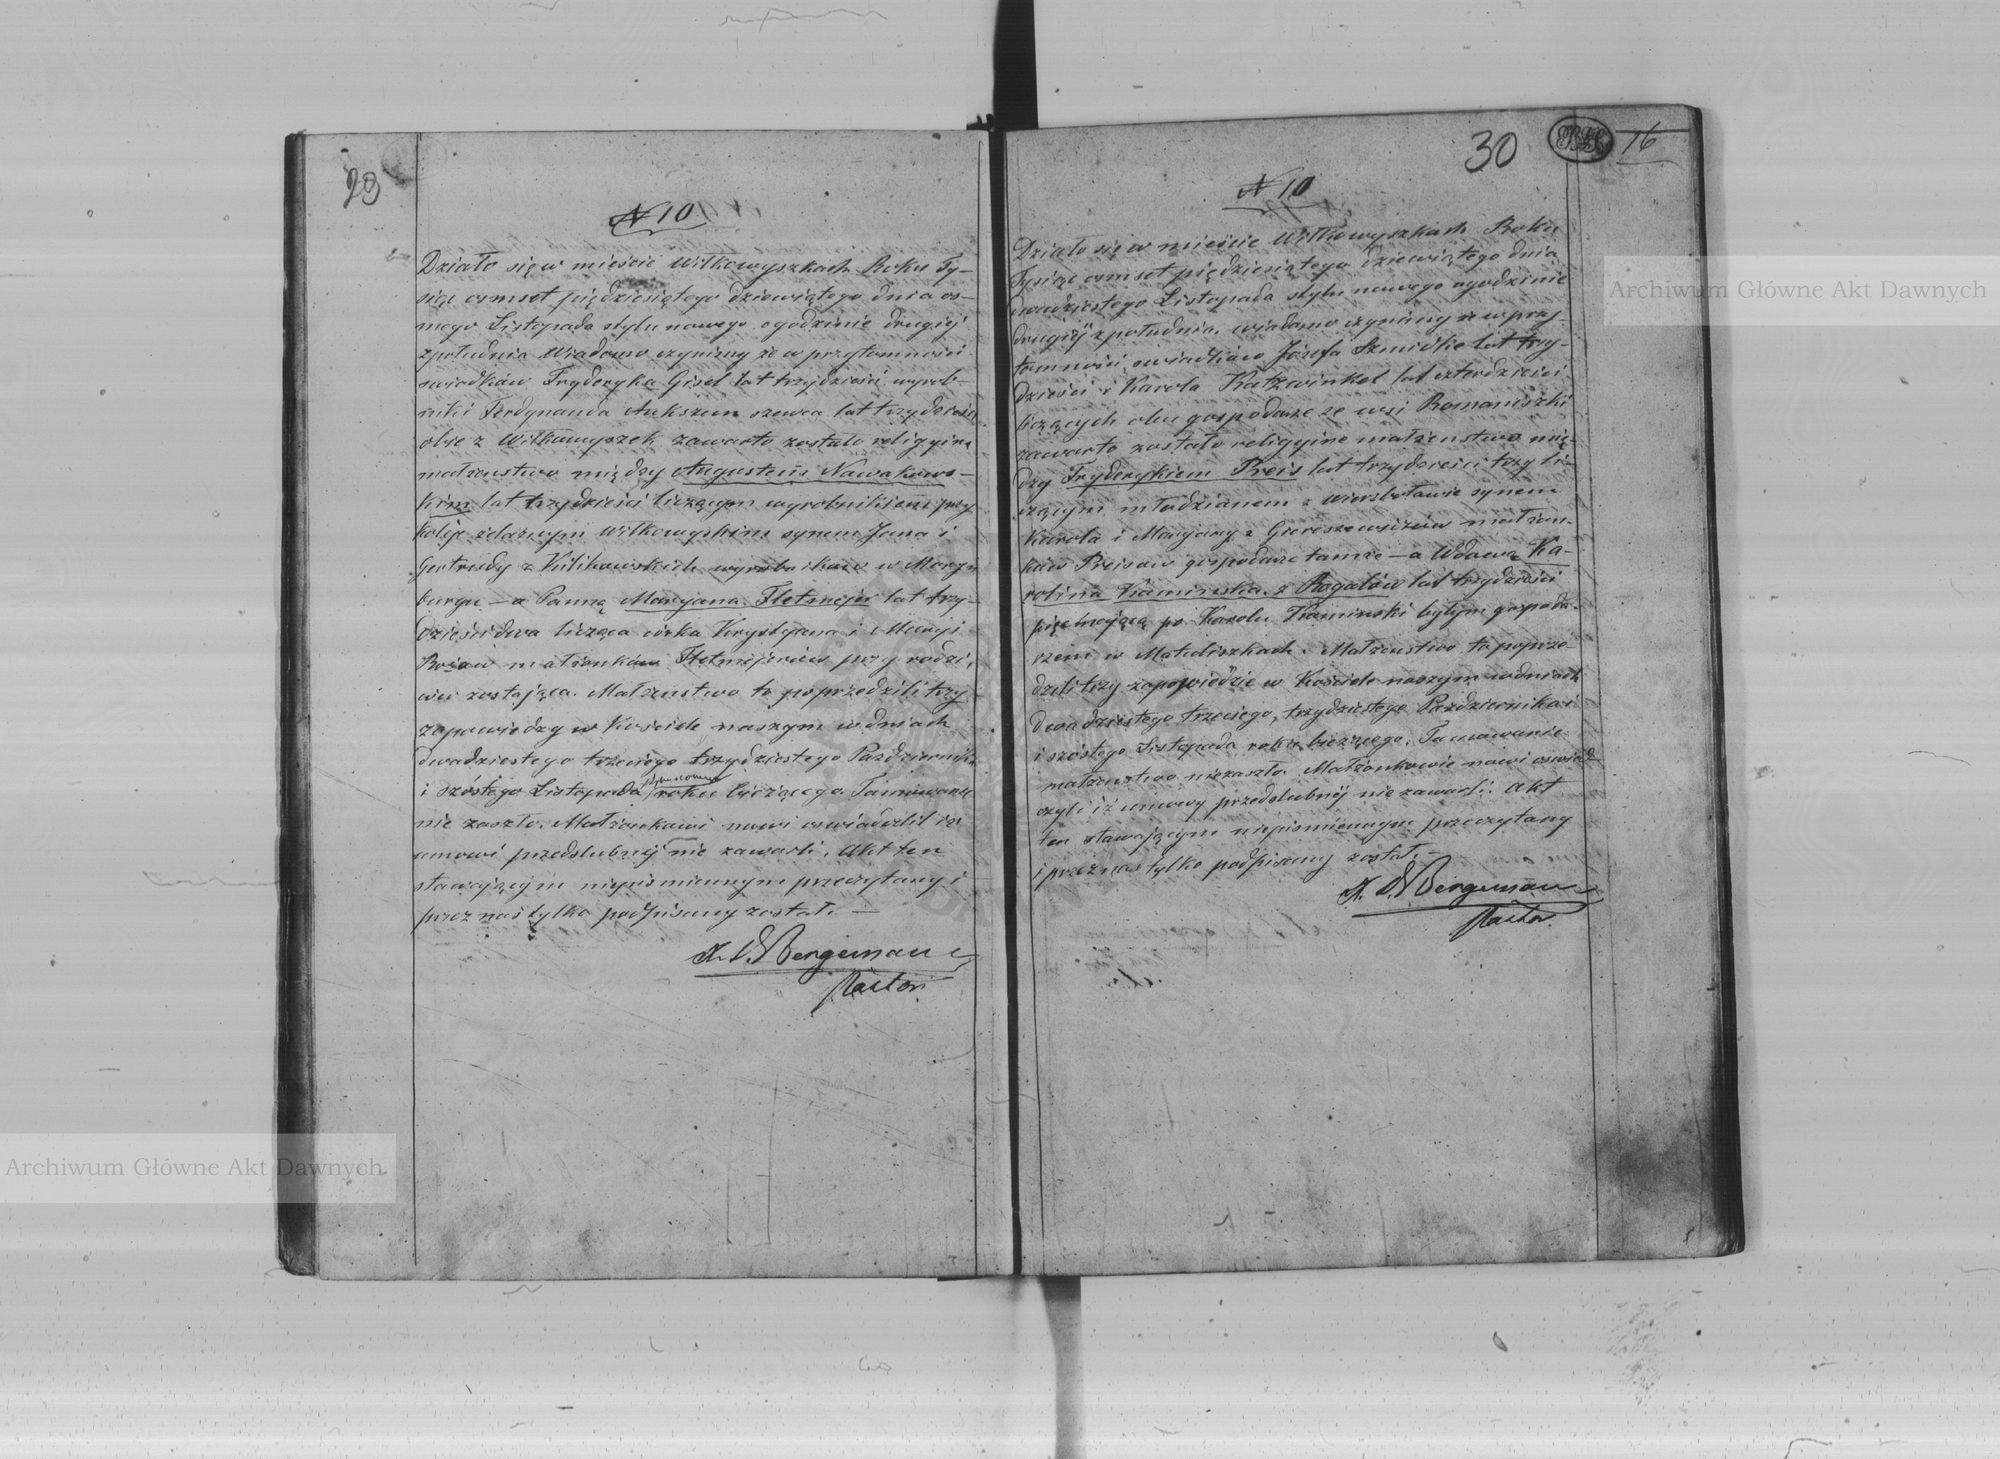 29
N 10
Działo się w mieście Wiłkowyszkach Roku Ty-
siąc osmset piędziesiątego dziewiątego dnia os-
mego Listopada stylu nowego o godzinie drugiej
z południa. Wiadomo czynimy że w przytomności
swiadków Fryderyka Gisel lat trzydzieści wyrob-
nik i Ferdynanda szewca lat trzydzieści
obie z Wiłkowyszek zawarte zostało religijne
małzenstwo między Augustem Nawakows-
kim lat trzydzieści liczącym wyrobnikiem przy
kolije żelaznym Wilkowyskim synem Jana i
Gertrudy z wyrobników w
burgu — a Panną Maryana Fletmejer lat trzy-
dzieści dwa licząca córka Krystyana i Maryi
małżonków Fletmejerów przy rodzi-
ców zostająca. Małzenstwo to poprzedzili trzy
zapowiedzy w Kościele naszym w dniach
dwadziestego trzeciego trzydziestego Października
i szóstego Listopada stylu nowego roku bieżącego. Tamowanie
nie zaszło. Małżonkowi nowi oswiadczili iż
umowi przedslubnéj nie zawarli. Akt ten
stawającym niepismiennym przeczytany i
przez nas tylko podpisany został. —
K. D. Bergemann
Pastor.
30
16
N 10
Działo się w mieście Wiłkowyszkach Roku
Tysiąc osmset pięcdziesiątego dziewiątego dnia
dwudziestego Listopada stylu nowego o godzinie
drugiéj z południa. wiadomo czynimy że w przy-
tomności swiadków Józefa Szmidke lat trzy-
dzieści i Karola Katzwinkel lat czterdzieści
liczących obu gospodarze ze wsi Romaniszki
zawarte zostało religyine małżenstwo mię-
dzy Fryderykiem Preis lat trzydzieści trzy li-
czącym młodzianem z synem
Karola i Maryany z małżon-
ków Preisów gospodarze tamże — a Wdową Ka-
rolina Kaminska z Rogalów lat trzydzieści
pięc mającą po Karolu Kaminski byłym gospoda-
rzem w Matuliszkach. Małzenstwo to poprze-
dzili trzy zapowiedzie w Kościele naszym w dniach
dwadziestego trzeciego, trzydziestego Października i
i szóstego Listopada roku bieżącego. Tamowanie
małzenstwo niezaszło. Małżonkowie nowi oswiad-
czyli iż umowy przedslubnéj nie zawarli. Akt
ten stawającym niepismiennym przeczytany
i przez nas tylko podpisany został. —
K. D. Bergemann
Pastor.
Archiwum Główne Akt Dawnych
Archiwum Główne Akt Dawnych